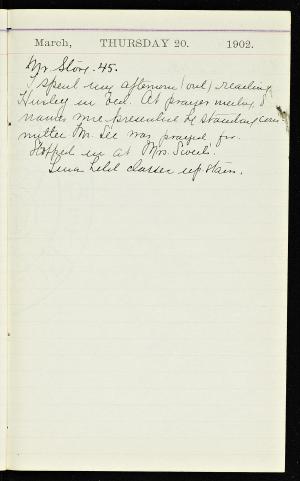 March, THURSDAY 20. 1902.
Mr Story. 45.
I spent my afternoon (out) reading
Huxley in Ed. At prayer meeting 8
names were presented to standing com
mittee Mr. See was prayed for.
Stopped in at Mrs. Sweets'.
Lena held classes upstairs.